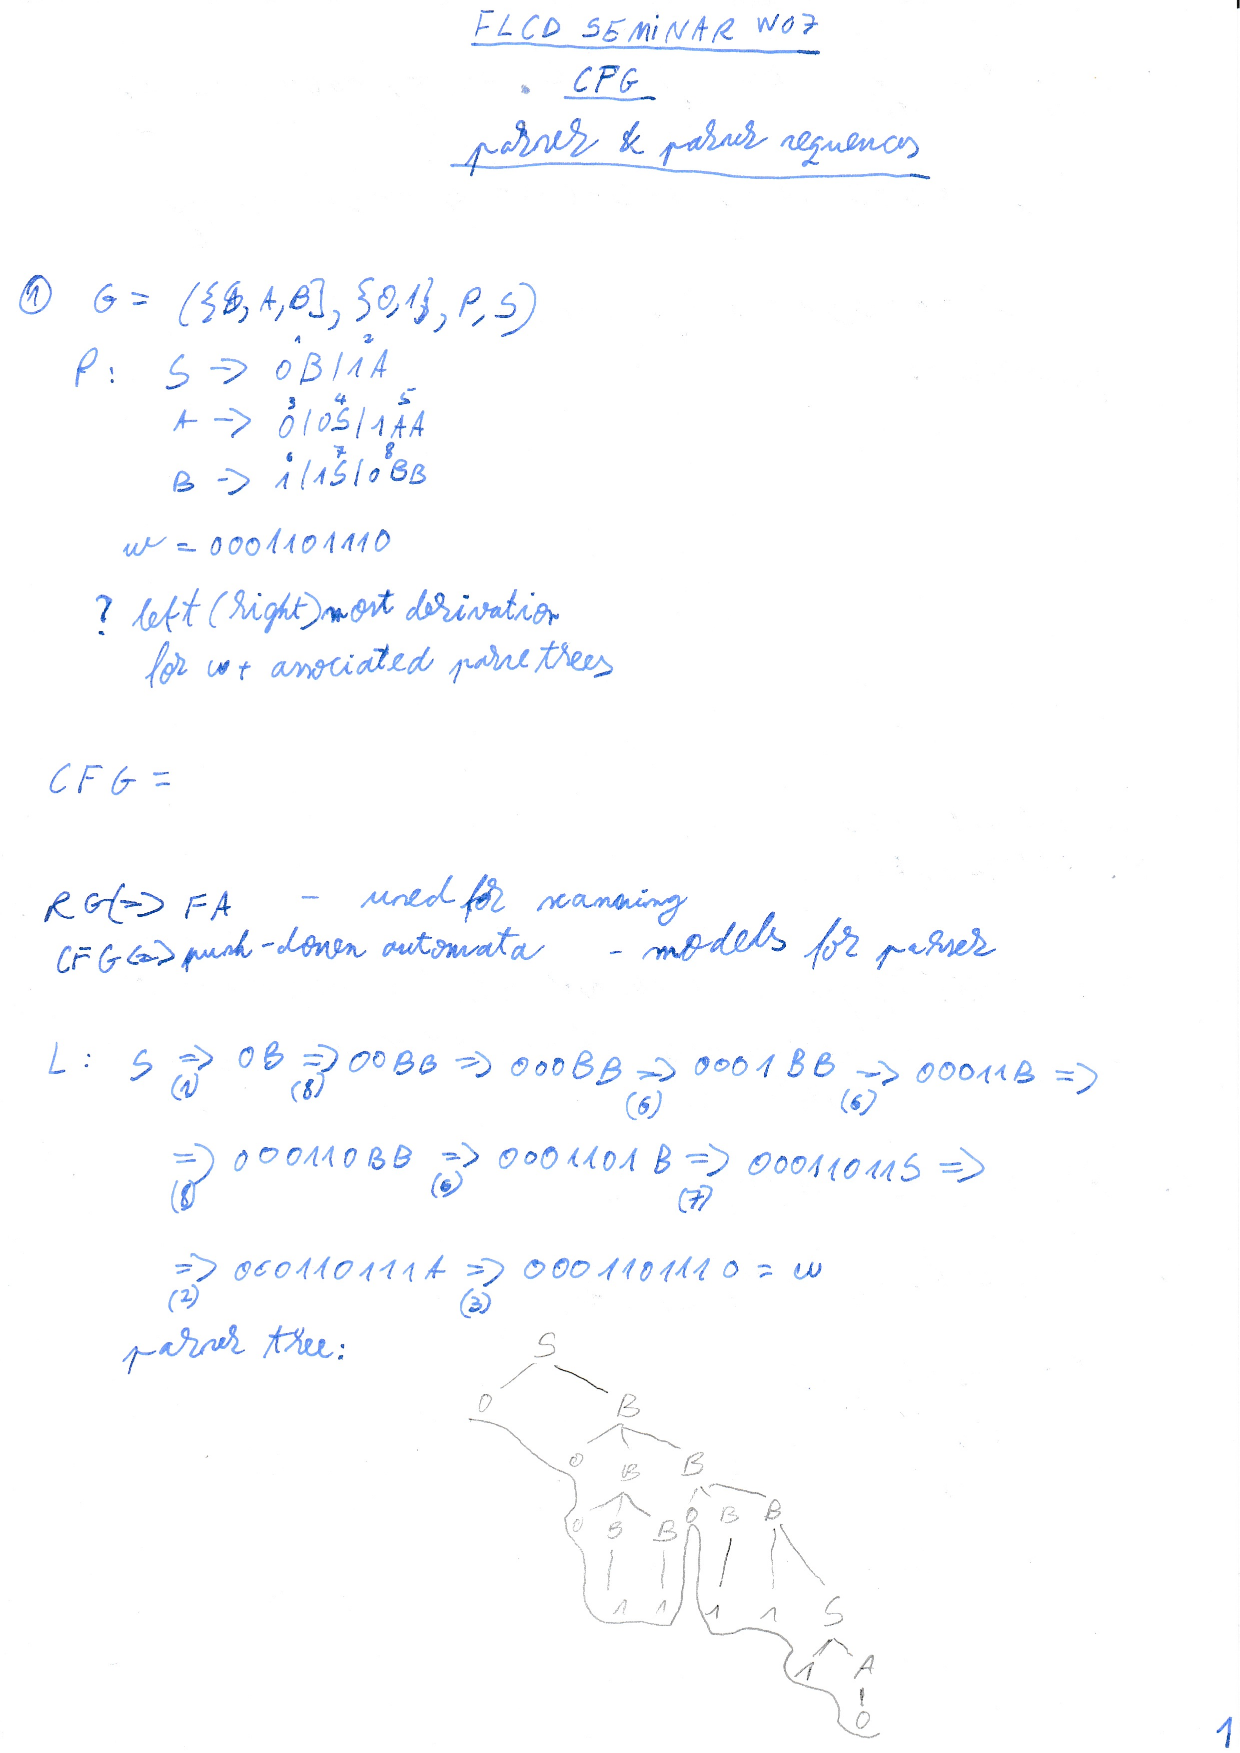 FLCD SEMINAR W07
CFG
parser & parser sequences
① G = ({S, A, B}, {0,1}, P, S)
1 2
P: S -> 0B | 1A
3 4 5
A -> 0 | 0S | 1AA
6 7 8
B -> 1 | 1S | 0BB
w = 0001101110
? left (right) most derivation
for w + associated parse trees
CFG =
RG <=> FA - used for scanning
CFG <=> push-down automata - models for parser
L: S => 0B => 00BB => 000BB => 0001BB => 00011B =>
(1) (8) (6) (6)
=> 000110BB => 0001101B => 00011011S =>
(8) (6) (7)
=> 000110111A => 0001101110 = w
(2) (3)
parser tree:
S
0 B
0 B B
0 B B 0 B B
1 1 1 1 S
1 A
0
1